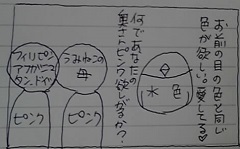 お前の目の色と同じ
色が欲しい。愛してる♡
水色
何であなたの
奥さんピンク欲しがるかっ?
うみねこの
母
ピンク
フィリピン
アフガニス
タン、ドイツ
ピンク